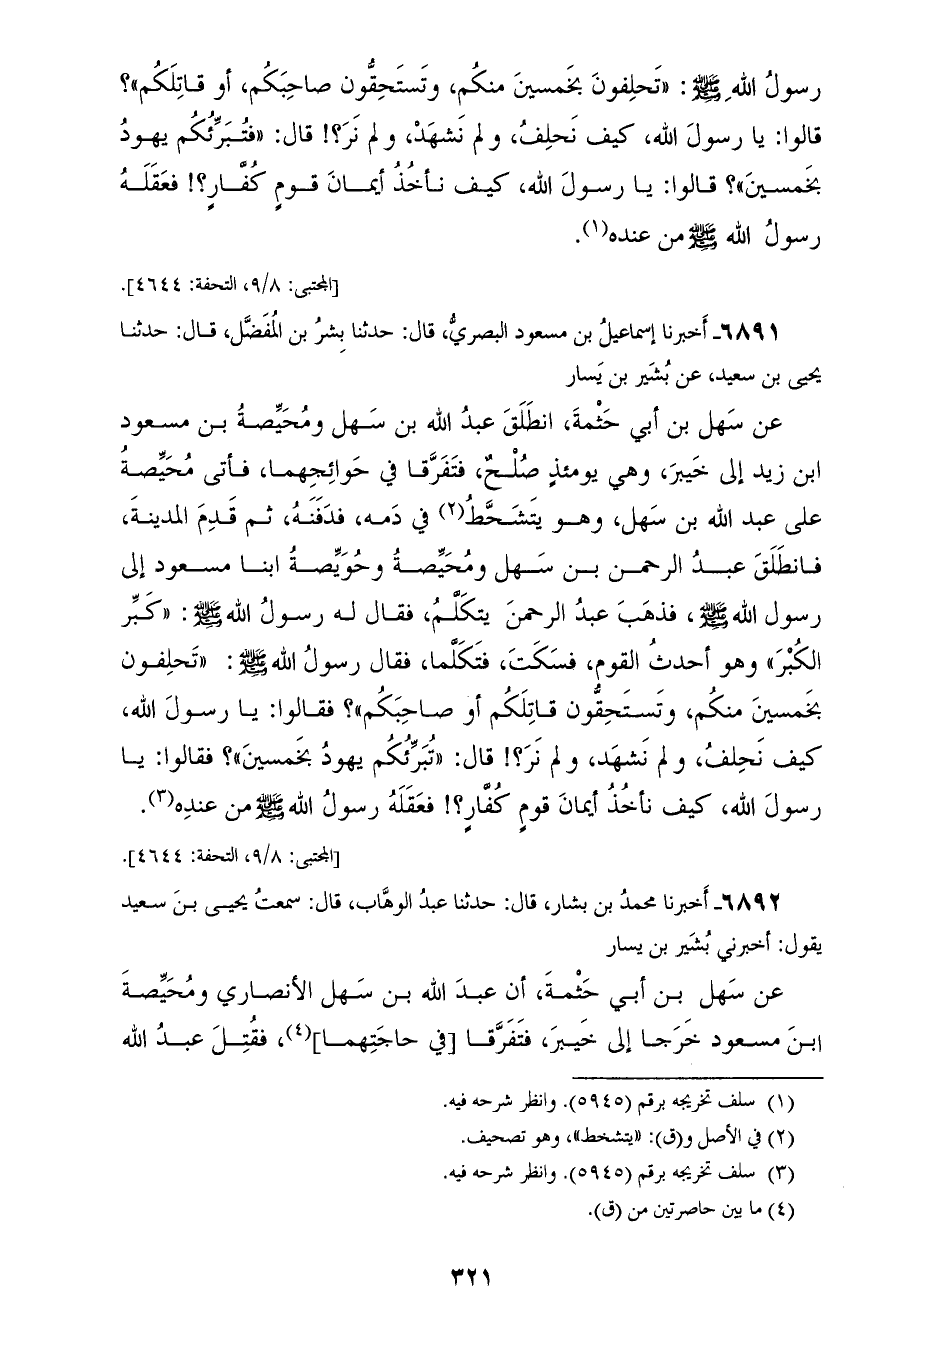 رسولُ الله ﷺ: «تَحلِفونَ بخَمسينَ منكُم، وتَستَحِقُّون صاحِبَكُم، أو قاتِلَكُم»؟
قالوا: يا رسولَ الله، كيف نَحلِفُ، ولم نَشهَدْ، ولم نَرَ؟! قال: «فتُبَرِّئُكُم يهودُ
بخَمسينَ»؟ قالوا: يا رسولَ الله، كيف نأخُذُ أيمانَ قومٍ كُفَّارٍ؟! فعَقَلَهُ
رسولُ الله ﷺ من عنده(١).
[المجتبى: ٩/٨، التحفة: ٤٦٤٤].
٦٨٩١ـ أَخبرنا إسماعيلُ بن مسعود البصريُّ، قال: حدثنا بِشرُ بن المُفَضَّل، قال: حدثنا
يحيى بن سعيد، عن بُشَير بن يَسار
عن سَهل بن أبي حَثْمةَ، انطَلَقَ عبدُ الله بن سَهل ومُحَيِّصةُ بن مسعود
ابن زيد إلى خَيبرَ، وهي يومئذٍ صُلْحٌ، فتَفَرَّقا في حَوائِجِهما، فأتى مُحَيِّصةُ
على عبد الله بن سَهل، وهو يتَشَحَّطُ(٢) في دَمه، فدَفَنَهُ، ثم قَدِمَ المدينةَ،
فانطَلَقَ عبدُ الرحمن بن سَهل ومُحَيِّصةُ وحُوَيِّصةُ ابنا مسعود إلى
رسول الله ﷺ، فذهَبَ عبدُ الرحمنَ يتكَلَّمُ، فقال له رسولُ الله ﷺ: «كَبِّر
الكُبْرَ» وهو أحدثُ القوم، فسَكَتَ، فتَكَلَّما، فقال رسولُ الله ﷺ: «تَحلِفون
بخَمسينَ منكُم، وتَستَحِقُّون قاتِلَكُم أو صاحِبَكُم»؟ فقالوا: يا رسولَ الله،
كيف نَحلِفُ، ولم نَشهَد، ولم نَرَ؟! قال: «تُبَرِّئُكُم يهودُ بخَمسينَ»؟ فقالوا: يا
رسولَ الله، كيف نأخُذُ أيمانَ قومٍ كُفَّارٍ؟! فعَقَلَهُ رسولُ الله ﷺ من عندِه(٣).
[المجتبى: ٩/٨، التحفة: ٤٦٤٤].
٦٨٩٢ـ أَخبرنا محمدُ بن بشار، قال: حدثنا عبدُ الوهَّاب، قال: سمعتُ يحيى بنَ سعيد
يقول: أخبرني بُشَير بن يسار
عن سَهل بن أبي حَثْمةَ، أن عبدَ الله بن سَهل الأنصاري ومُحَيِّصةَ
ابنَ مسعود خَرَجا إلى خَيبرَ، فتَفَرَّقا [في حاجَتِهما](٤)، فقُتِلَ عبدُ الله
(١) سلف تخريجه برقم (٥٩٤٥). وانظر شرحه فيه.
(٢) في الأصل و(ق): «يتشخط»، وهو تصحيف.
(٣) سلف تخريجه برقم (٥٩٤٥). وانظر شرحه فيه.
(٤) ما بين حاصرتين من (ق).
٣٢١